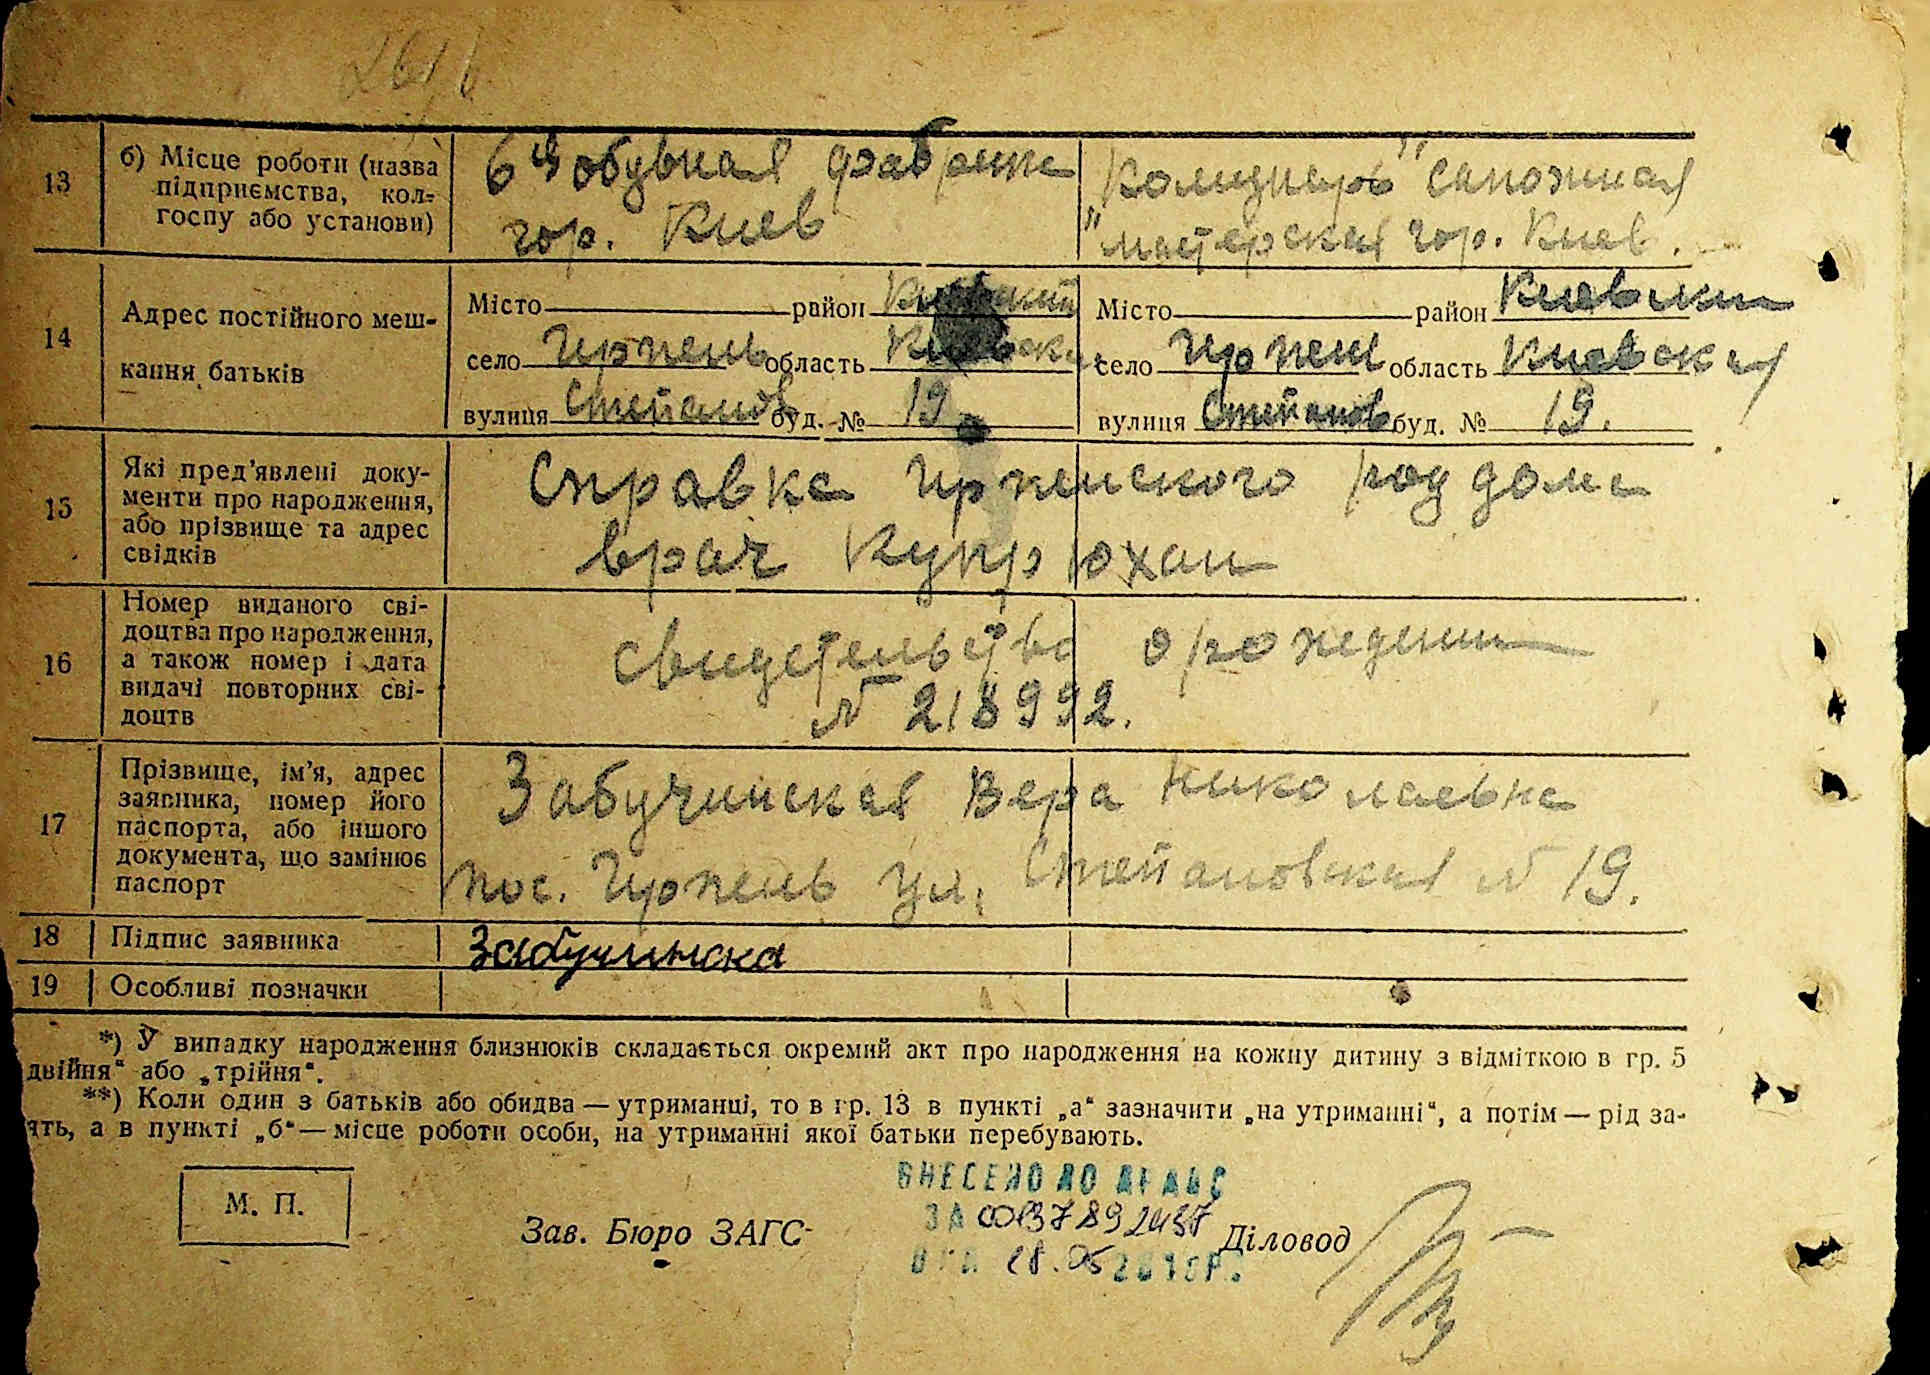 13 б) Місце роботи (назва підприємства, колгоспу або установи)
6ая обувная фабрика
гор. Киев
сапожная
"мастерская гор. Киев.
14 Адрес постійного мешкання батьків
Місто район Киевский
село Ирпень область Киевская
вулиця Степанов буд. № 19
Місто район Киевский
село Ирпень область Киевская
вулиця Степанов буд. № 19.
15 Які пред'явлені документи про народження, або прізвище та адрес свідків
Справка Ирпенского род дома
врач
16 Номер виданого свідоцтва про народження, а також номер і дата видачі повторних свідоцтв
свидетельство о рождении
№ 218992.
17 Прізвище, ім'я, адрес заявника, номер його паспорта, або іншого документа, що замінює паспорт
Забучинская Вера Николаевна
пос. Ирпень ул. Степановская № 19.
18 Підпис заявника
Забучинска
19 Особливі позначки
*) У випадку народження близнюків складається окремий акт про народження на кожну дитину з відміткою в гр. 5
двійня" або „трійня".
**) Коли один з батьків або обидва — утриманці, то в гр. 13 в пункті „а" зазначити „на утриманні", а потім — рід за-
ять, а в пункті „б" — місце роботи особи, на утриманні якої батьки перебувають.
М. П.
Зав. Бюро ЗАГС
ВНЕСЕНО ДО ДРАЦС
ЗА
Діловод